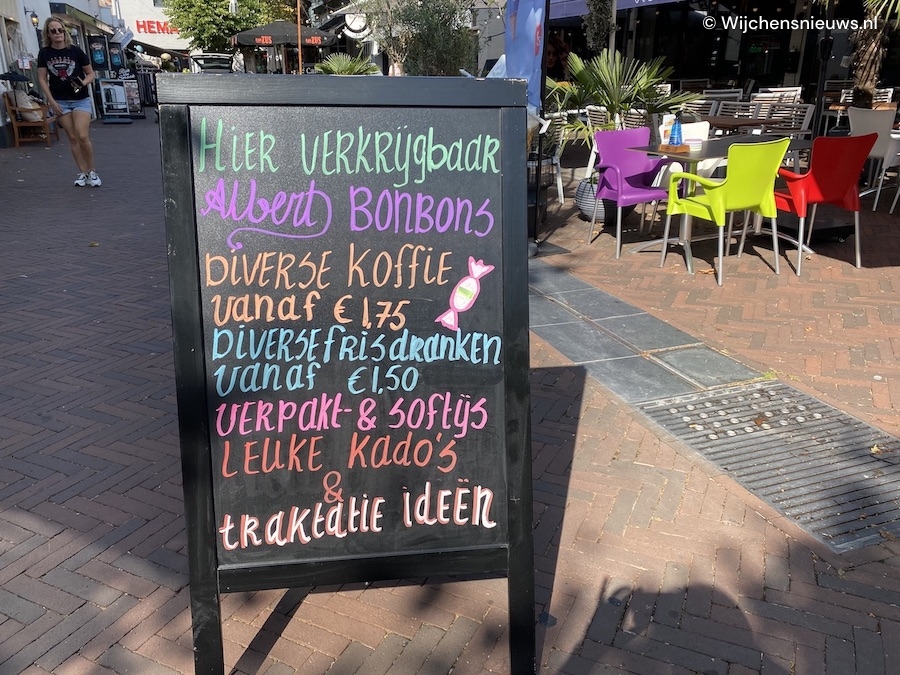 © Wijchensnieuws.nl
HEMA
ZUS
Hier verkrijgbaar
Albert Bonbons
Diverse Koffie
vanaf €1,75
Diverse frisdranken
vanaf €1,50
Verpakt- & softijs
Leuke Kado's
&
traktatie ideën